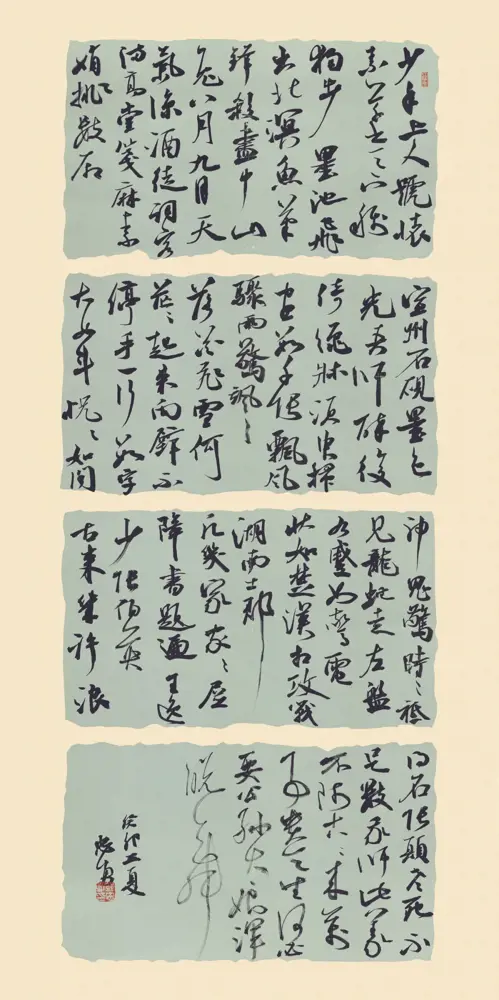 少年上人號懷
素草書天下稱
獨步 墨池飛
出北溟魚筆
鋒殺盡中山
兔八月九月天
氣涼酒徒詞客
滿高堂箋麻素
絹排數廂
宣州石硯墨色
光吾師醉後
倚繩牀須臾掃
盡數千張飄風
驟雨驚颯々
落花飛雪何
茫々起來向壁不
停手一行數字
大如斗怳々如聞
神鬼驚時々祗
見龍蛇走左盤
右蹙如驚電
狀如楚漢相攻戰
湖南七郡
凡幾家家々屏
障書題遍王逸
少張伯英
古來幾許浪
得名張顛老死不
足數我師此義
不師古々來萬
事貴天生何必
要公孫大娘渾
脫舞
癸卯之夏